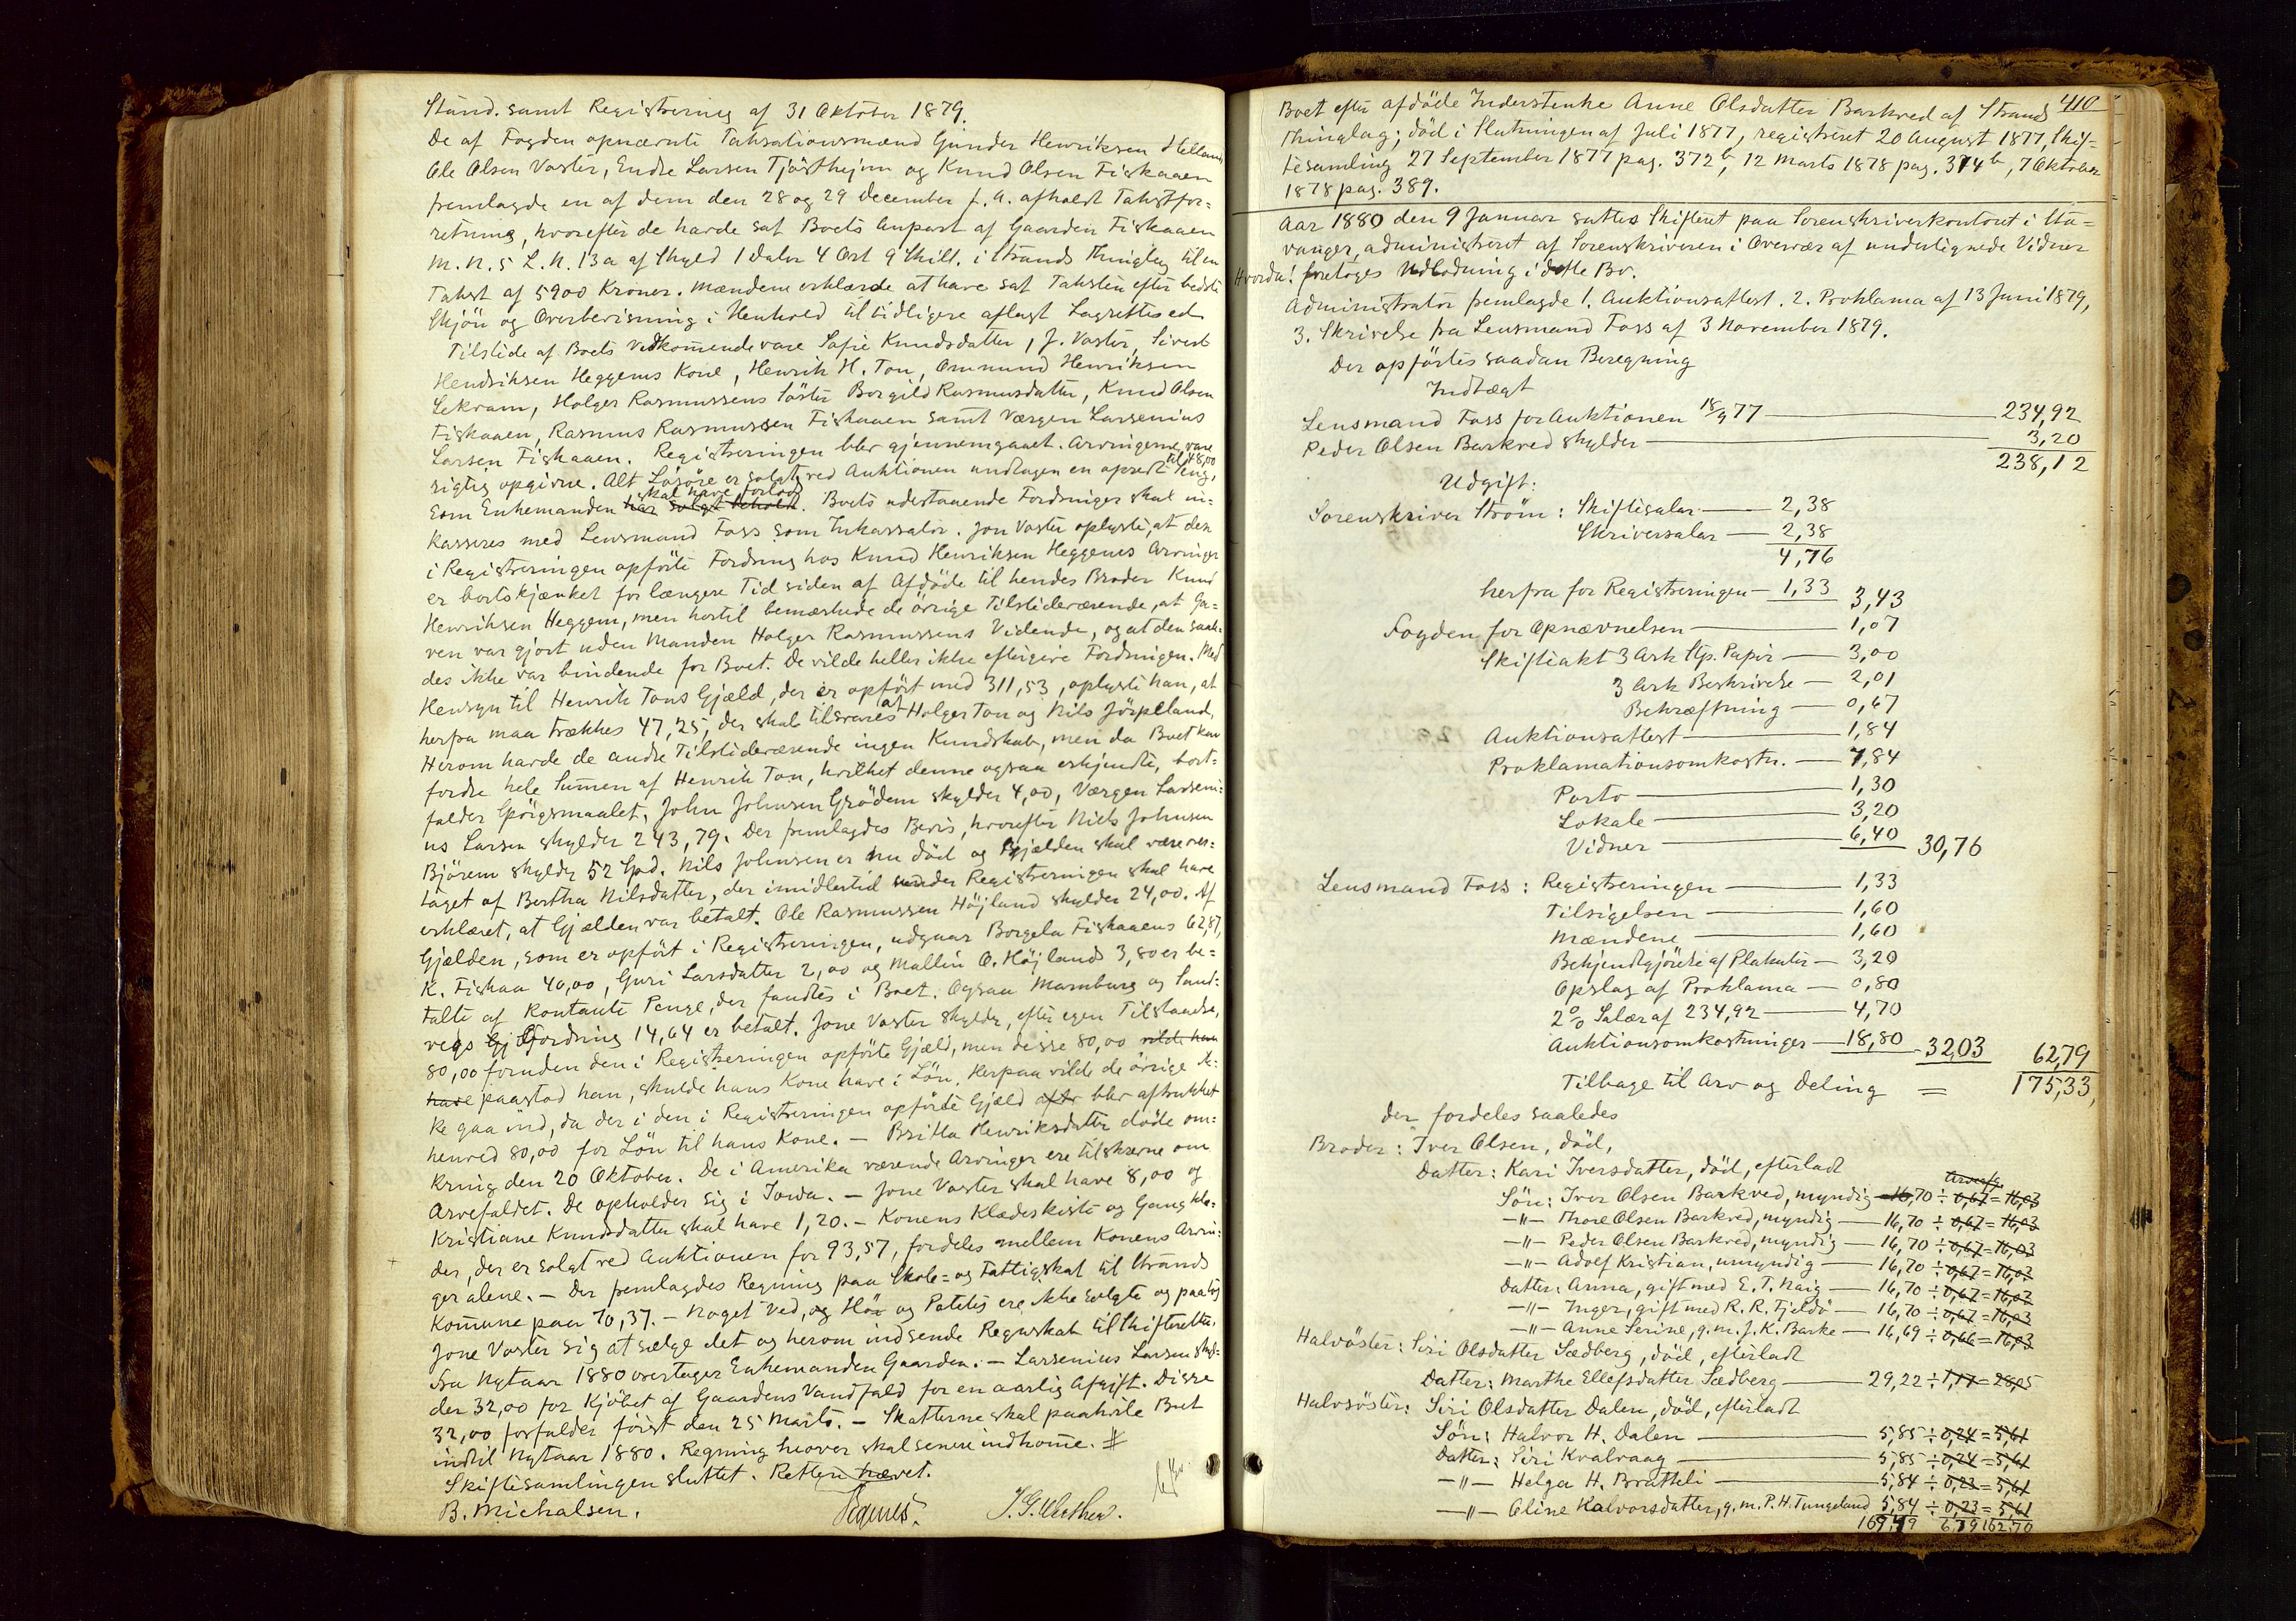 Stand. samt Registrering af 31 Oktober 1879.
De af Fogden opnævnte Taksationsmænd Gunder Henriksen Helland
Ole Olsen Vaster, Endre Larsen Tjøstheim og Knud Olsen Fiskaaen
fremlagde en af dem den 28 og 29 December f. A. afholdt Takstfor=
retning, hvorefter de havde sat Boets Anpart af Gaarden Fiskaaen
M. N. 5 L. N. 13a af Skyld 1 Daler 4 Ort 9 Skill. i Strands Thinglag til en
Takst af 5900 Kroner. Mændene erklærede at have sat Taksten efter bedste
Skjön og Overbevisning i Henhold til tidligere aflagt Lagrettesed
Tilstede af Boets Vedkommende vare Sofie Knudsdatter, J. Vaster, Sivert
Hendriksen Heggems Kone, Henrik H. Tou, Ommund Henriksen
Lekvam, Holger Rasmussens Söster Borgild Rasmusdatter, Knud Olsen
Fiskaaen, Rasmus Rasmussen Fiskaaen samt Værgen Larsenius
Larsen Fiskaaen. Registreringen blev gjennemgaaet. Arvingerne vare
rigtig opgivne. Alt Lösöre er solgt ved Auktionen undtagen en opredt Seng, til 48,00
som Enkemanden har solgt beholdt skal have forlods. Boets udestaaende Fordringer skal in=
kasseres med Lensmand Foss som Inkassator. Jon Vaster oplyste, at den
i Registreringen opförte Fordring hos Knud Henriksen Heggems Arvinger
er bortskjænket for længere Tid siden af Afdöde til hendes Broder Knud
Henriksen Heggem, men hertil bemærkede de övrige Tilstedeværende, at Ga=
ven var gjort uden Manden Holger Rasmussens Vidende, og at den saale=
des ikke var bindende for Boet. De vilde heller ikke eftergive Fordringen. Med
Hensyn til Henrik Tous Gjæld, der er opfört med 311,53, oplyste han, at
herfra maa trækkes 47,25, der skal tilsvares af Holger Tou og Nils Jörpeland,
Herom havde de andre Tilstedeværende ingen Kundskab, men da Boet kan
fordre hele Summen af Henrik Tou, hvilket denne ogsaa erkjendte, bort=
falder Spörgsmaalet. John Johnsen Grödem skylder 4,00, Værgen Larseni=
us Larsen skylder 243,79. Der fremlagdes Bevis, hvorefter Niels Johnsen
Björem skylder 52 Spd. Nils Johnsen er nu död og Gjælden skal være ved=
taget af Bertha Nilsdatter, der imidlertid under Registreringen skal have
erklæret, at Gjælden var betalt. Ole Rasmussen Höjland skylder 24,00. Af
Gjælden, som er opfört i Registreringen, udgaar Borgela Fiskaaens 62,87,
K. Fiskaa 40,00, Guri Larsdatter 2,00 og Mallin O. Höjlands 3,80 er be=
talte af Kontante Penge, der fandtes i Boet. Ogsaa Marnburg og Sand=
vegs Fordring 14,64 er betalt. Jone Vaster skylder, efter egen Tilstaaelse,
80,00 foruden den i Registreringen opförte Gjæld, men disse 80,00 vilde han
have paastod han, skulde hans Kone have i Lön. Herpaa vilde de övrige ik=
ke gaa ind, da der i den i Registreringen opförte Gjæld blev aftrukket
henved 80,00 for Lön til hans Kone. — Britha Henriksdatter döde om=
kring den 20 Oktober. De i Amerika værende Arvinger ere tilskrevne om
Arvefaldet. De opholder sig i Iowa. — Jone Vaster skal have 8,00 og
Kristiane Knudsdatter skal have 1,20. — Konens Klædeskiste og Gangklæ=
der, der er solgt ved Auktionen for 93,57, fordeles mellem Konens Arvin=
ger alene. — Der fremlagdes Regning paa Skole= og Fattigskat til Strands
Kommune paa 70,37. — Noget Ved, og Hö og Potetes ere ikke solgte og paatog
Jone Vaster sig at sælge det og herom indsende Regnskab til Skifteretten.
Fra Nytaar 1880 overtager Enkemanden Gaarden. — Larsenius Larsen skyl=
der 32,00 for Kjöbet af Gaardens Vandfald for en aarlig Afgift. Disse
32,00 forfalder först den 25 Marts. — Skatterne skal paahvile Boet
indtil Nytaar 1880. Regning herover skal senere indkomme. #
Skiftesamlingen sluttet. Retten hævet.
B. Michalsen.
410
Boet efter afdöde Inderstenke Anne Olsdatter Barkved af Strands
Thinglag; död i Slutningen af Juli 1877, registreret 20 August 1877, Skif=
tesamling 27 September 1877 pag. 372b, 12 Marts 1878 pag. 374b, 7 Oktober
1878 pag. 389.
Aar 1880 den 9 Januar sattes Skifteret paa Sorenskriverkontoret i Sta=
vanger, administreret af Sorenskriveren i Overvær af undertegnede Vidner
Hvorda! foretoges Udlodning i dette Bo.
Administrator fremlagde 1. Auktionsattest. 2. Proklama af 13 Juni 1879,
3. Skrivelse fra Lensmand Foss af 3 November 1879.
Der opførtes saadan Beregning
Indtægt
Lensmand Foss for Auktionen 18/9 77 — 234,92
Peder Olsen Barkved skylder — 3,20
238,12
Udgift:
Sorenskriver Ström: Skiftesalær — 2,38
Skriversalær — 2,38
4,76
herfra for Registreringen — 1,33 3,43
Fogden for Opnævnelsen — 1,07
Skifteakt 3 Ark Stp. Papir — 3,00
3 Ark Beskrivelse — 2,01
Bekræftning — 0,67
Auktionsattest — 1,84
Proklamationsomkostn. — 7,84
Porto — 1,30
Lokale — 3,20
Vidner — 6,40 30,76
Lensmand Foss: Registreringen — 1,33
Tilsigelsen — 1,60
Mændene — 1,60
Bekjendtgjörelse af Plakater — 3,20
Opslag af Proklama — 0,80
2% Salær af 234,92 — 4,70
Auktionsomkostninger — 18,80 32,03 62,79
Tilbage til Arv og Deling = 175,33,
der fordeles saaledes
Broder: Iver Olsen, död,
Datter: Kari Iversdatter, död, efterladt
Arveafg.
Sön: Iver Olsen Barkved, myndig — 16,70 ÷ 0,67 = 16,03
—"— Thore Olsen Barkved, myndig — 16,70 ÷ 0,67 = 16,03
—"— Peder Olsen Barkved, myndig — 16,70 ÷ 0,67 = 16,03
—"— Adolf Kristian, umyndig — 16,70 ÷ 0,67 = 16,03
Datter: Anna, gift med E. T. Naig — 16,70 ÷ 0,67 = 16,03
—"— Inger, gift med R. R. Fjeldö — 16,70 ÷ 0,67 = 16,03
—"— Anne Serine, g. m. J. K. Barke — 16,69 ÷ 0,66 = 16,03
Halvsöster: Siri Olsdatter Sædberg, död, efterladt
Datter: Marthe Ellefsdatter Sædberg — 29,22 ÷ 1,17 = 28,05
Halvsöster: Siri Olsdatter Dalen, död, efterladt
Sön: Halvor H. Dalen — 5,85 ÷ 0,24 = 5,61
Datter: Siri Kvalvaag — 5,85 ÷ 0,24 = 5,61
—"— Helga H. Bratteli — 5,84 ÷ 0,23 = 5,61
—"— Oline Halvorsdatter, g. m. P. H. Tungeland 5,84 ÷ 0,23 = 5,61
169,49 6,79 162,70